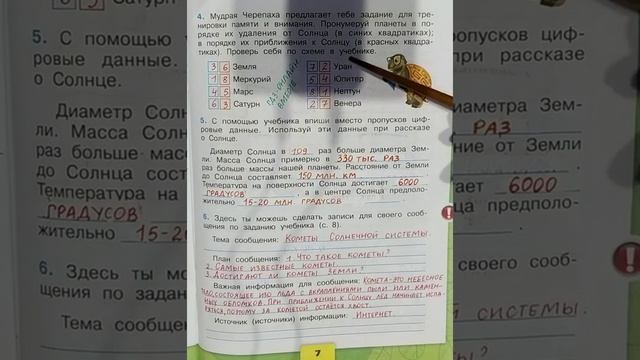 4. Мудрая Черепаха предлагает тебе задание для тре-
нировки памяти и внимания. Пронумеруй планеты в по-
рядке их удаления от Солнца (в синих квадратиках);
в порядке их приближения к Солнцу (в красных квадра-
тиках). Проверь себя по схеме в учебнике.
3 6 Земля 7 2 Уран
1 8 Меркурий 5 4 Юпитер
4 5 Марс 8 1 Нептун
6 3 Сатурн 2 7 Венера
5. С помощью учебника впиши вместо пропусков циф-
ровые данные. Используй эти данные при рассказе
о Солнце.
Диаметр Солнца в 109 раз больше диаметра Зем-
ли. Масса Солнца примерно в 330 тыс. раз
раз больше массы нашей планеты. Расстояние от Земли
до Солнца составляет 150 млн. км
Температура на поверхности Солнца достигает 6000
градусов, а в центре Солнца предположи-
тельно 15-20 млн. градусов
6. Здесь ты можешь сделать записи для своего сооб-
щения по заданию учебника (с. 8).
Тема сообщения: Кометы Солнечной системы.
План сообщения: 1. Что такое кометы?
2. Самые известные кометы.
3. Достигают ли кометы Земли?
Важная информация для сообщения: Комета-это небесное
тело, состоящее изо льда с вкраплениями пыли или камен-
ных обломков. При приближении к Солнцу лёд начинает испа-
ряться, поэтому за кометой остаётся хвост.
Источник (источники) информации: Интернет.
7
Сатурн
5. С помощью
ровые данные.
о Солнце.
Диаметр Со
ли. Масса Солн
раз больше мас
до Солнца сост
Температура на
градусов
жительно 15-20
6. Здесь ты
щения по зада
Тема сообщ
Венера
пропусков циф-
при рассказе
диаметра Зем-
раз
от Земли
6000
предполо-
его сооб-
системы.